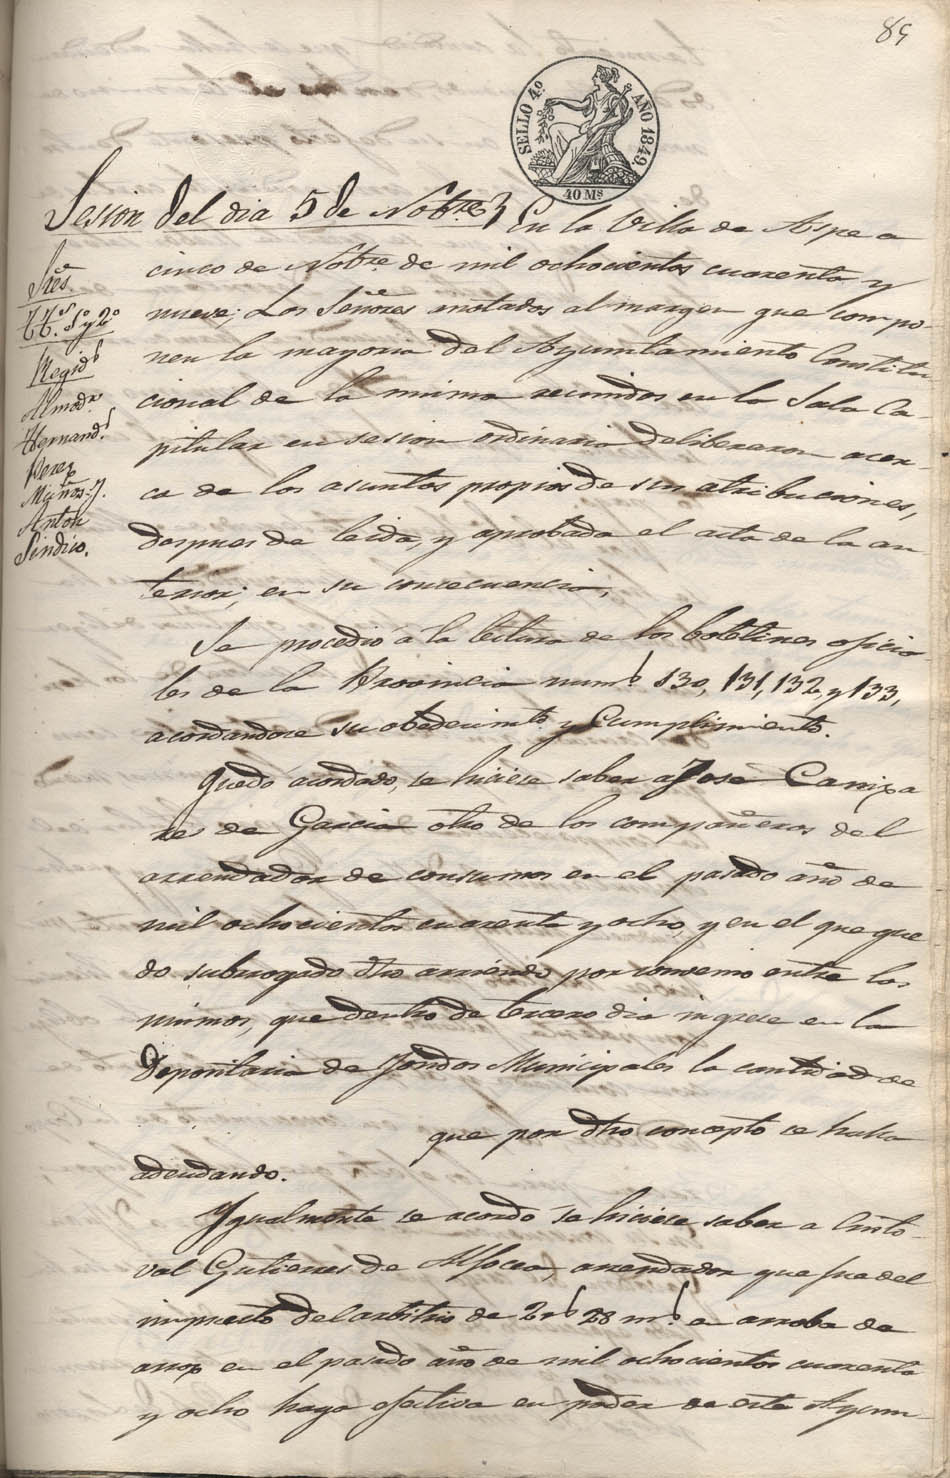 85
SELLO 4º. AÑO 1849.
40 Ms
Sesion del dia 5 de Nobre. En la Villa de Aspe a
cinco de Nobre. de mil ochocientos cuarenta y
nueve; Los Señores anotados al margen que compo-
nen la mayoria del Ayuntamiento Constitu
cional de la misma reunidos en la Sala Ca-
pitular en sesion ordinaria deliberaron acer-
ca de los asuntos propios de sus atribuciones,
despues de leida, y aprobada el acta de la an
terior; en su consecuencia,
Sres.
TTs. 1º y 2º
Regids
Almodr.
Hernands.
Perez
Muñoz. J.
Anton
Sindico.
Se procedió a la lectura de los boletines oficia-
les de la Provincia nums. 130, 131, 132, y 133,
acordandose su obedecimto. y Cumplimiento.
Quedó acordado, se hiciese saber a Jose Cañiza
res de Garcia otro de los compañeros del
arrendador de consumos en el pasado año de
mil ochocientos cuarenta y ocho, y en el que que
do subrogado dho arriendo por convenio entre los
mismos, que dentro de tercero dia ingrese en la
Depositaria de fondos Municipales la cantidad de
que por dho concepto se halla
adeudando.
Ygualmente se acordó se hiciese saber a Cristo-
val Gutierres de Alfocea, arrendador que fue del
impuesto del arbitrio de 2 rs 28 ms. en arroba de
arroz en el pasado año de mil ochocientos cuarenta
y ocho haga efectiva en poder de este Ayun-